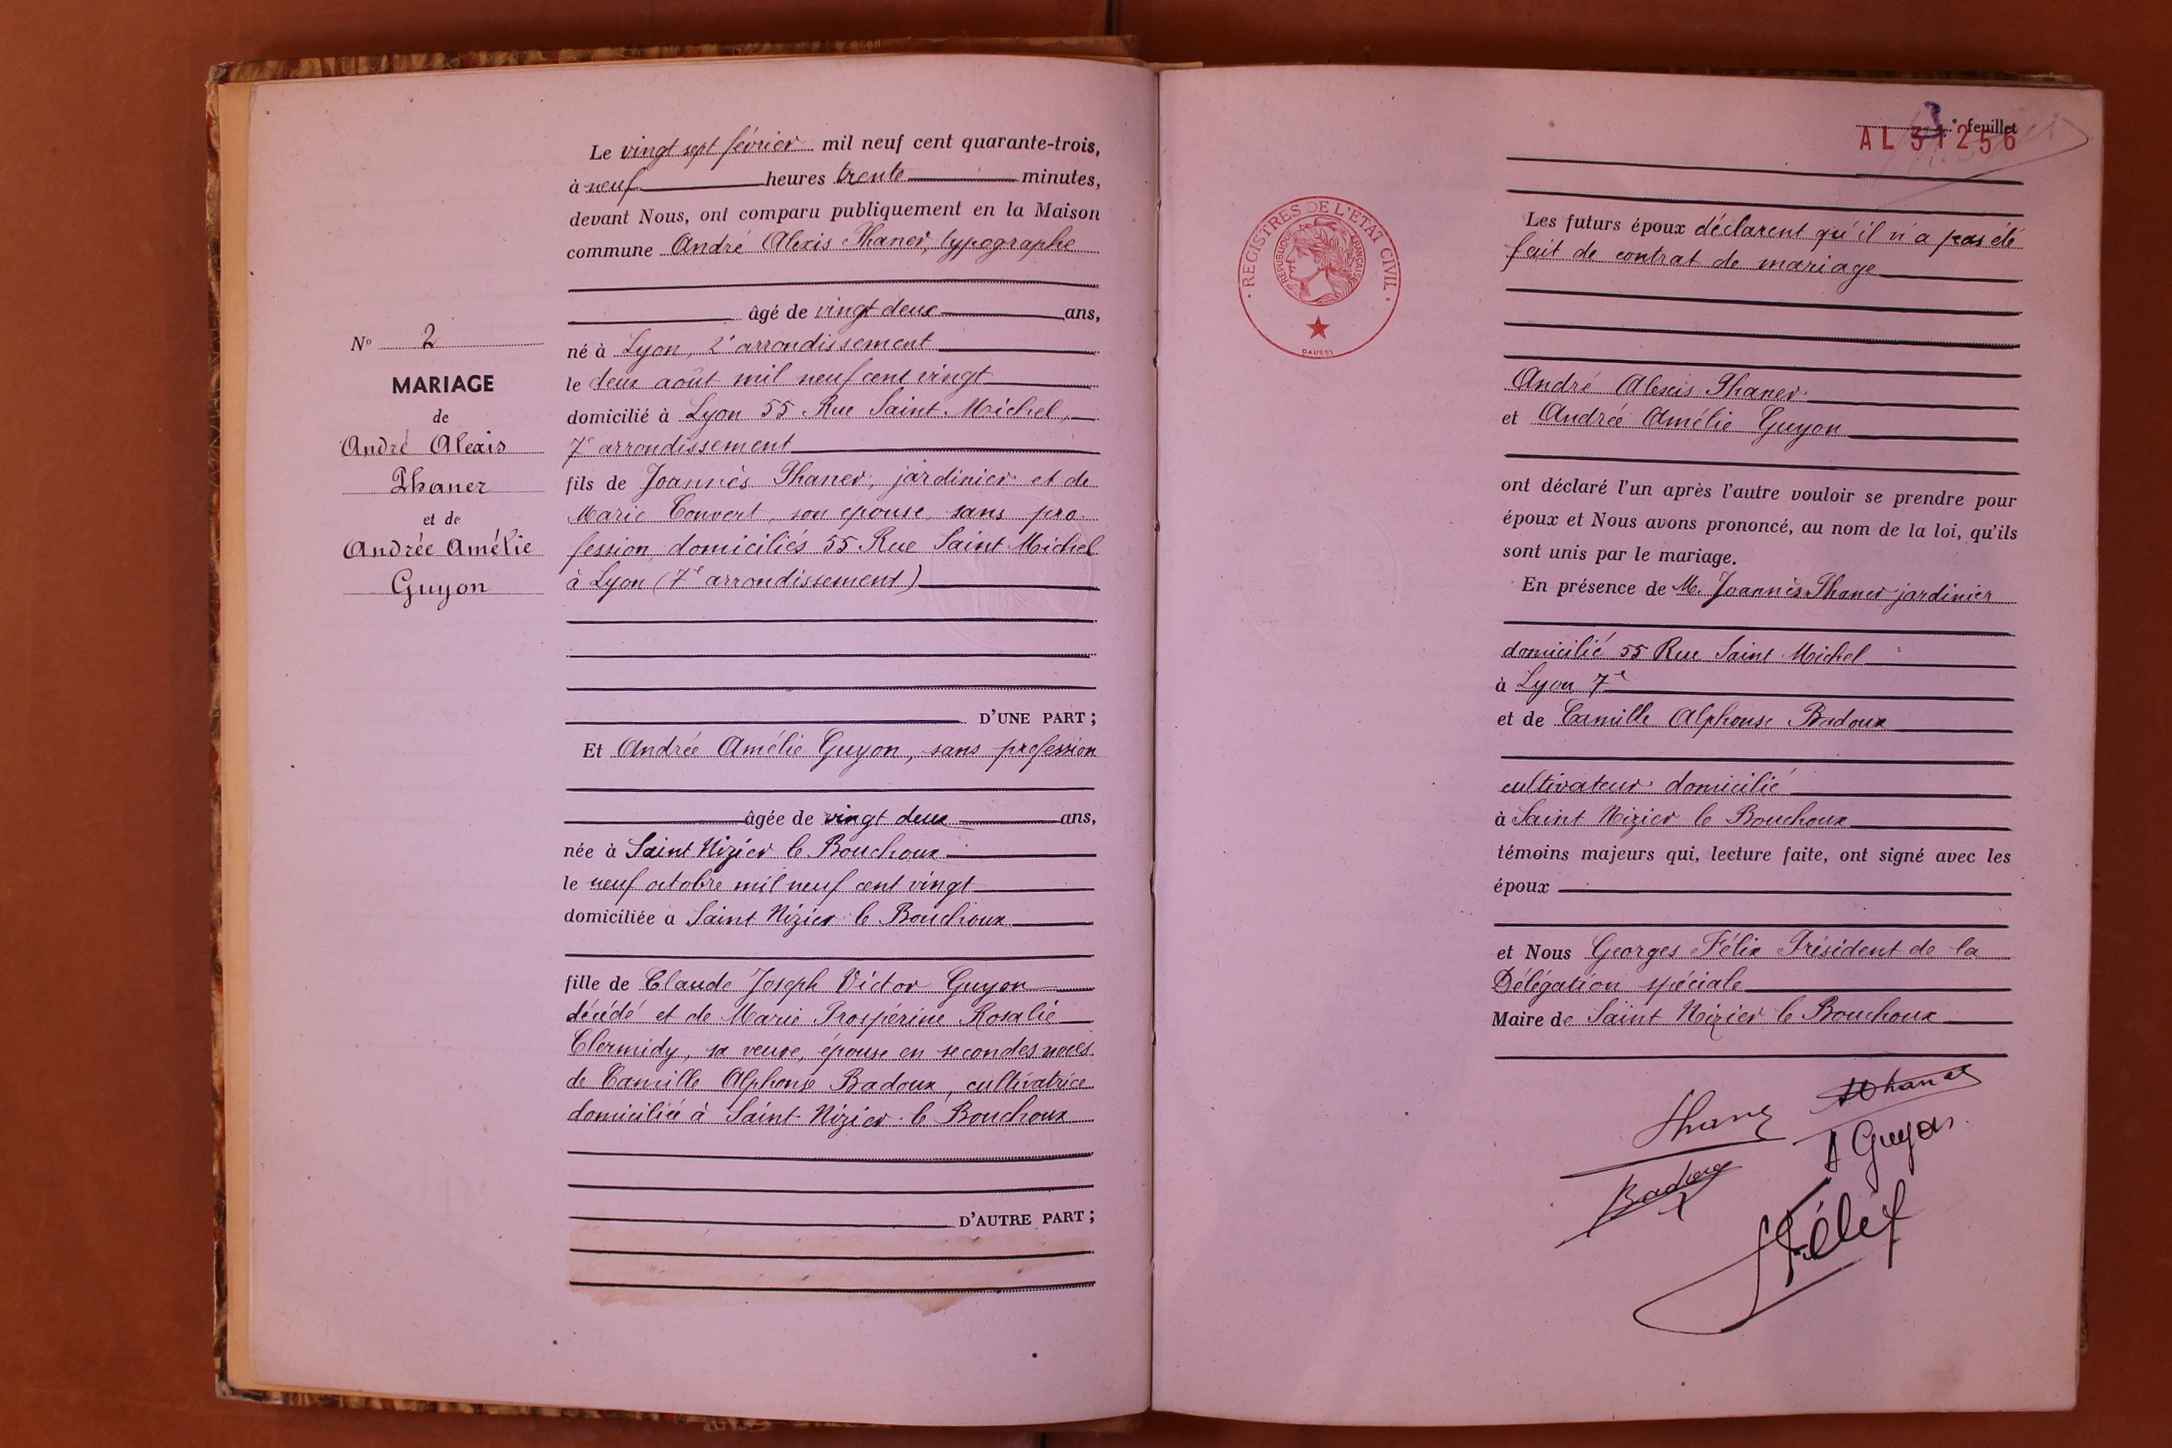 Le vingt sept février mil neuf cent quarante-trois,
à neuf heures trente minutes,
devant Nous, ont comparu publiquement en la Maison
commune André Alexis Thaner, typographe
âgé de vingt deux ans,
né à Lyon, 2e arrondissement
le deux août mil neuf cent vingt
domicilié à Lyon 55 Rue Saint Michel,
7e arrondissement
fils de Joannès Thaner, jardinier et de
Marie Convert, son epouse, sans pro-
fession domiciliés 55 Rue Saint Michel
à Lyon (7e arrondissement)
D'UNE PART ;
Et Andrée Amélie Guyon, sans profession
âgée de vingt deux ans,
née à Saint Nizier le Bouchoux
le neuf octobre mil neuf cent vingt
domiciliée à Saint Nizier le Bouchoux
fille de Claude Joseph Victor Guyon
décédé et de Marie Prospérine Rosalie
Clermidy, sa veuve, épouse en secondes noces
de Camille Alphonse Badoux, cultivatrice
domiciliée à Saint-Nizier-le Bouchoux
D'AUTRE PART ;
No 2
MARIAGE
de
André Alexis
Thaner
et de
Andrée Amélie
Guyon
3e feuillet
AL 31256
REGISTRES DE L'ÉTAT CIVIL
RÉPUBLIQUE FRANÇAISE
DAUSSY
Les futurs époux déclarent qu'il n'a pas été
fait de contrat de mariage
André Alexis Thaner
et Andrée Amélie Guyon
ont déclaré l'un après l'autre vouloir se prendre pour
époux et Nous avons prononcé, au nom de la loi, qu'ils
sont unis par le mariage.
En présence de M. Joannès Thaner jardinier
domicilié 55 Rue Saint Michel
à Lyon 7e
et de Camille Alphonse Badoux
cultivateur domicilié
à Saint Nizier le Bouchoux
témoins majeurs qui, lecture faite, ont signé avec les
époux
et Nous Georges Félix Président de la
Délégation spéciale
Maire de Saint Nizier le Bouchoux
Thaner
AThaner
A Guyon
Badoux
Félix